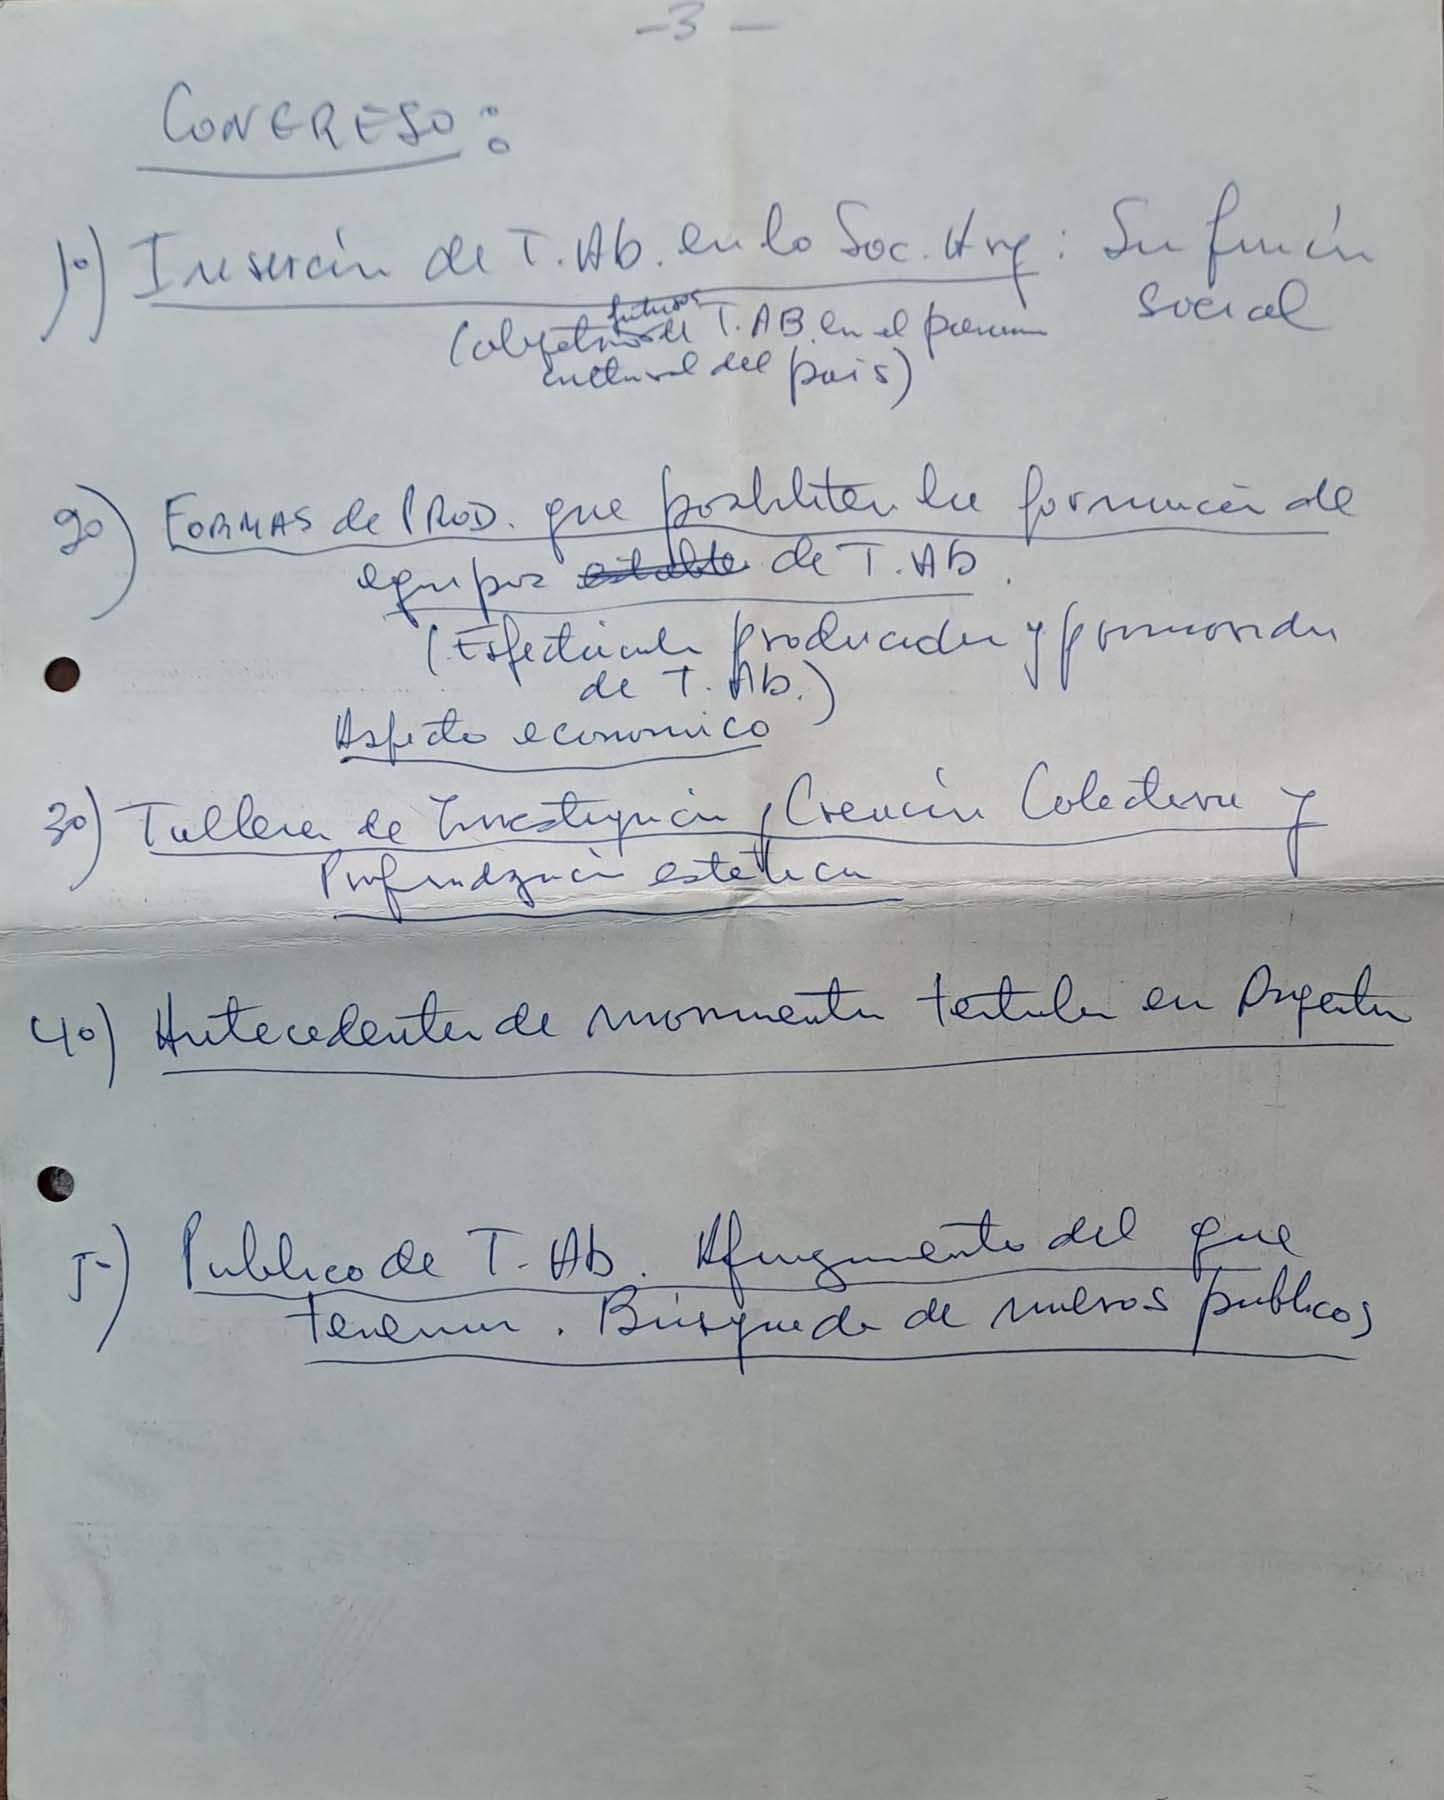 -3-
CONGRESO:
1º) Inserción de T. Ab. en la Soc. Arg: Su función
social
futuros
(objetivos de T. AB. en el panorama
cultural del país)
2º) FORMAS de PROD. que posibiliten la formación de
equipos estables de T. Ab.
(Espectáculos producidos y promovidos
de T. Ab.)
Aspecto economico
3º) Talleres de Investigación, Creación Colectiva y
Profundización estética
4º) Antecedentes de movimientos teatrales en Argentina
5-) Publico de T. Ab. Afianzamiento del que
tenemos. Búsqueda de nuevos publicos